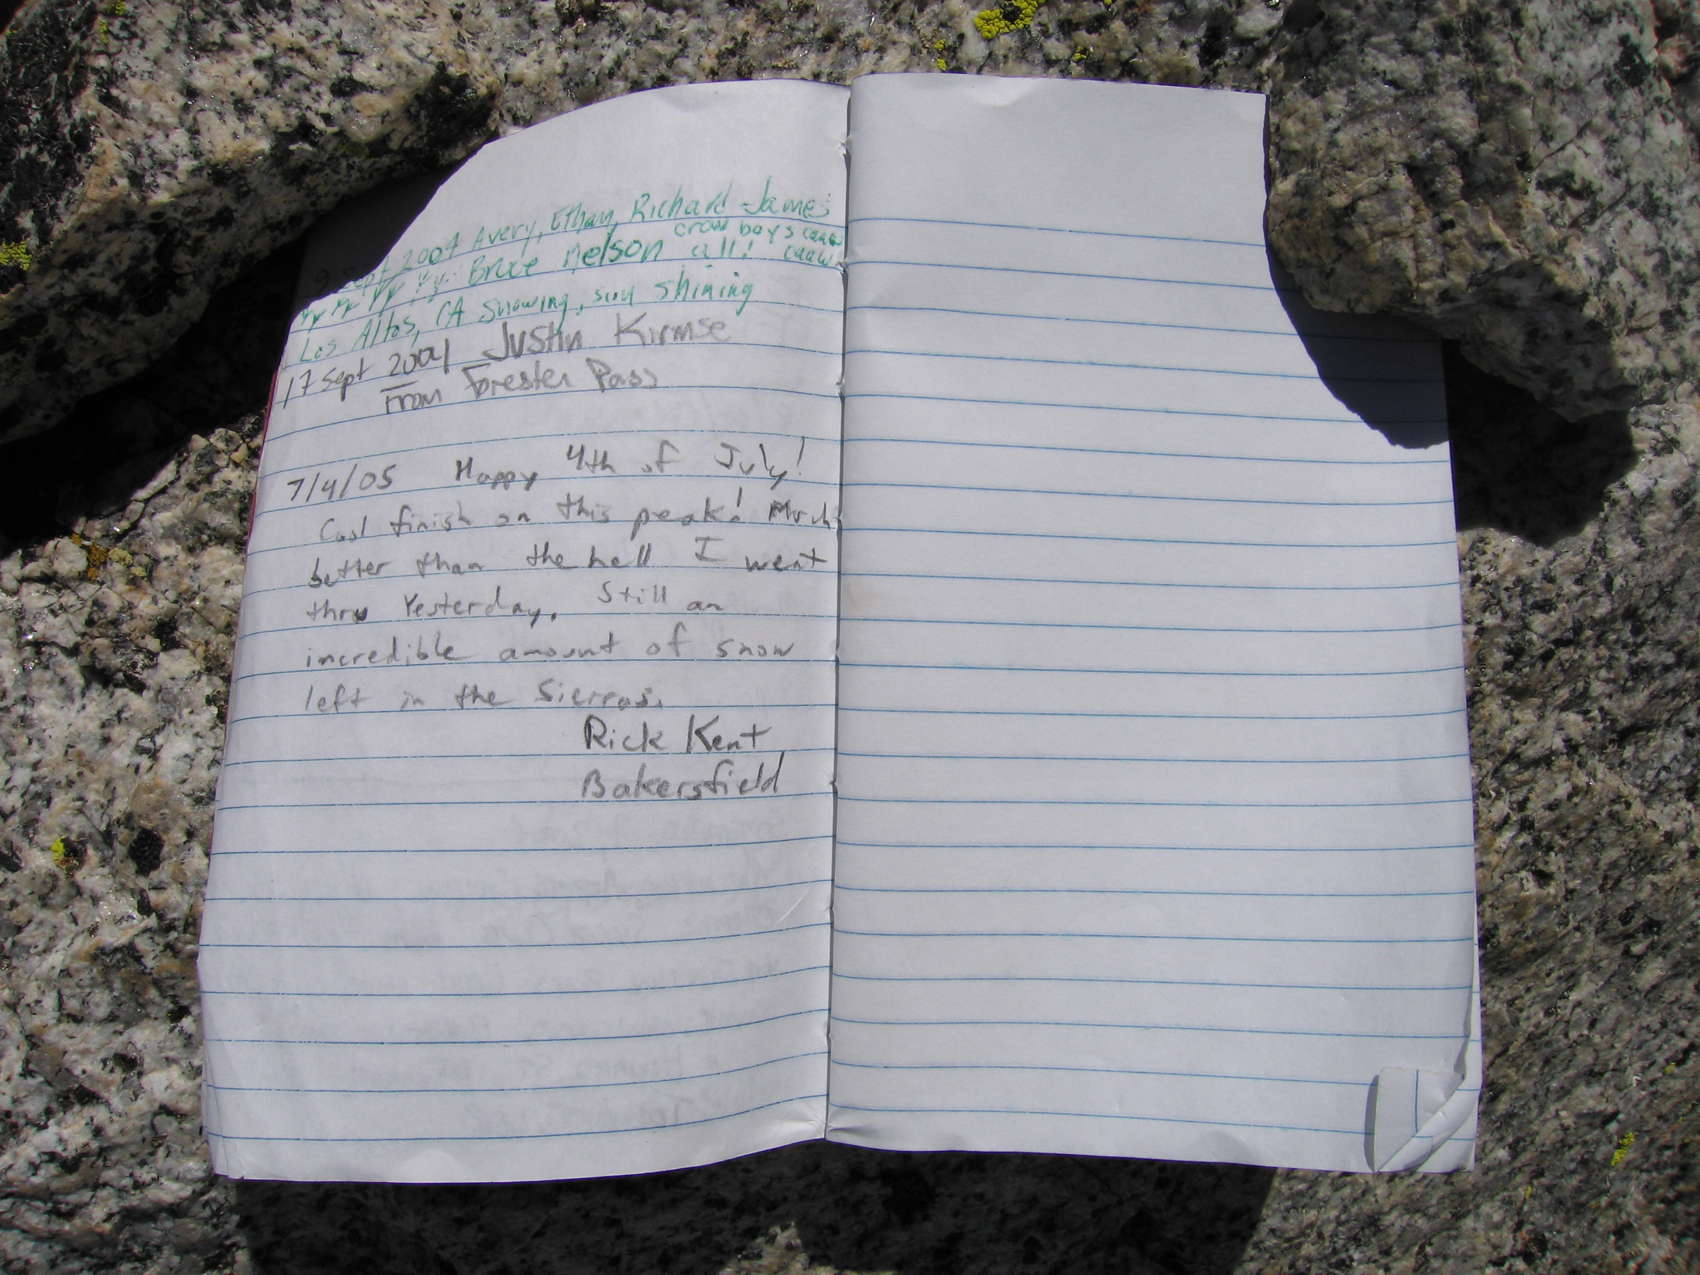 Sept 2004 Avery, Ethan, Richard James
crow boys caaw
Bruce Nelson all! caaw
Los Altos, CA Snowing, sun shining
17 Sept 2004 Justin Kirmse
From Forester Pass
7/4/05 Happy 4th of July!
Cool finish on this peak! Much
better than the hell I went
thru Yesterday. Still an
incredible amount of snow
left in the Sierras.
Rick Kent
Bakersfield